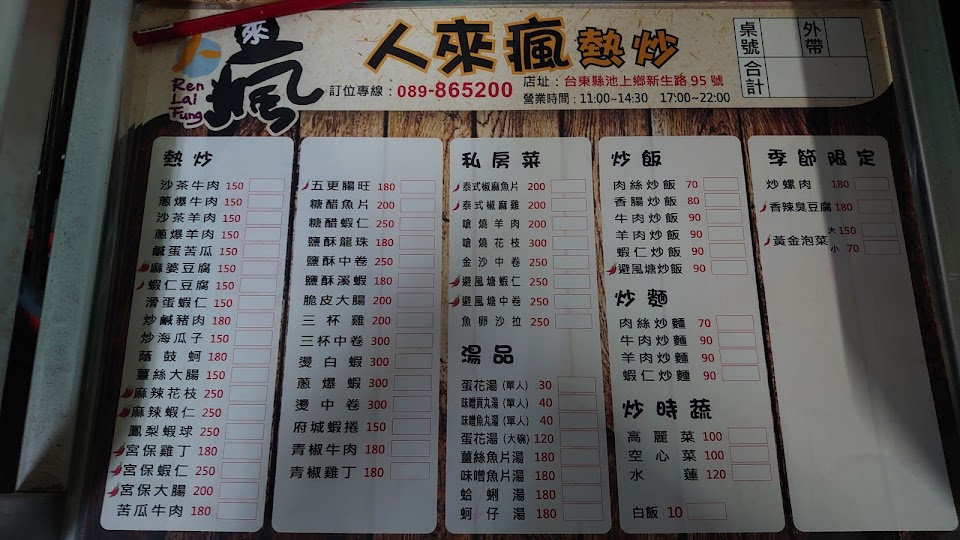 人來瘋
Ren
Lai
Fung
人來瘋熱炒
訂位專線：089-865200
店址：台東縣池上鄉新生路95號
營業時間：11:00~14:30 17:00~22:00
桌號
外帶
合計
熱炒
沙茶牛肉 150
蔥爆牛肉 150
沙茶羊肉 150
蔥爆羊肉 150
鹹蛋苦瓜 150
麻婆豆腐 150
蝦仁豆腐 150
滑蛋蝦仁 150
炒鹹豬肉 180
炒海瓜子 150
蔭鼓蚵 180
薑絲大腸 150
麻辣花枝 250
麻辣蝦仁 250
鳳梨蝦球 250
宮保雞丁 180
宮保蝦仁 250
宮保大腸 200
苦瓜牛肉 180
五更腸旺 180
糖醋魚片 200
糖醋蝦仁 250
鹽酥龍珠 180
鹽酥中卷 250
鹽酥溪蝦 180
脆皮大腸 200
三杯雞 200
三杯中卷 300
燙白蝦 300
蔥爆蝦 300
燙中卷 300
府城蝦捲 150
青椒牛肉 180
青椒雞丁 180
私房菜
泰式椒麻魚片 200
泰式椒麻雞 200
嗆燒羊肉 200
嗆燒花枝 300
金沙中卷 250
避風塘蝦仁 250
避風塘中卷 250
魚卵沙拉 250
湯品
蛋花湯(單人) 30
味噌貢丸湯(單人) 40
味噌魚丸湯(單人) 40
蛋花湯(大碗) 120
薑絲魚片湯 180
味噌魚片湯 180
蛤蜊湯 180
蚵仔湯 180
炒飯
肉絲炒飯 70
香腸炒飯 80
牛肉炒飯 90
羊肉炒飯 90
蝦仁炒飯 90
避風塘炒飯 90
炒麵
肉絲炒麵 70
牛肉炒麵 90
羊肉炒麵 90
蝦仁炒麵 90
炒時蔬
高麗菜 100
空心菜 100
水蓮 120
白飯 10
季節限定
炒螺肉 180
香辣臭豆腐 180
黃金泡菜 大 150
小 70